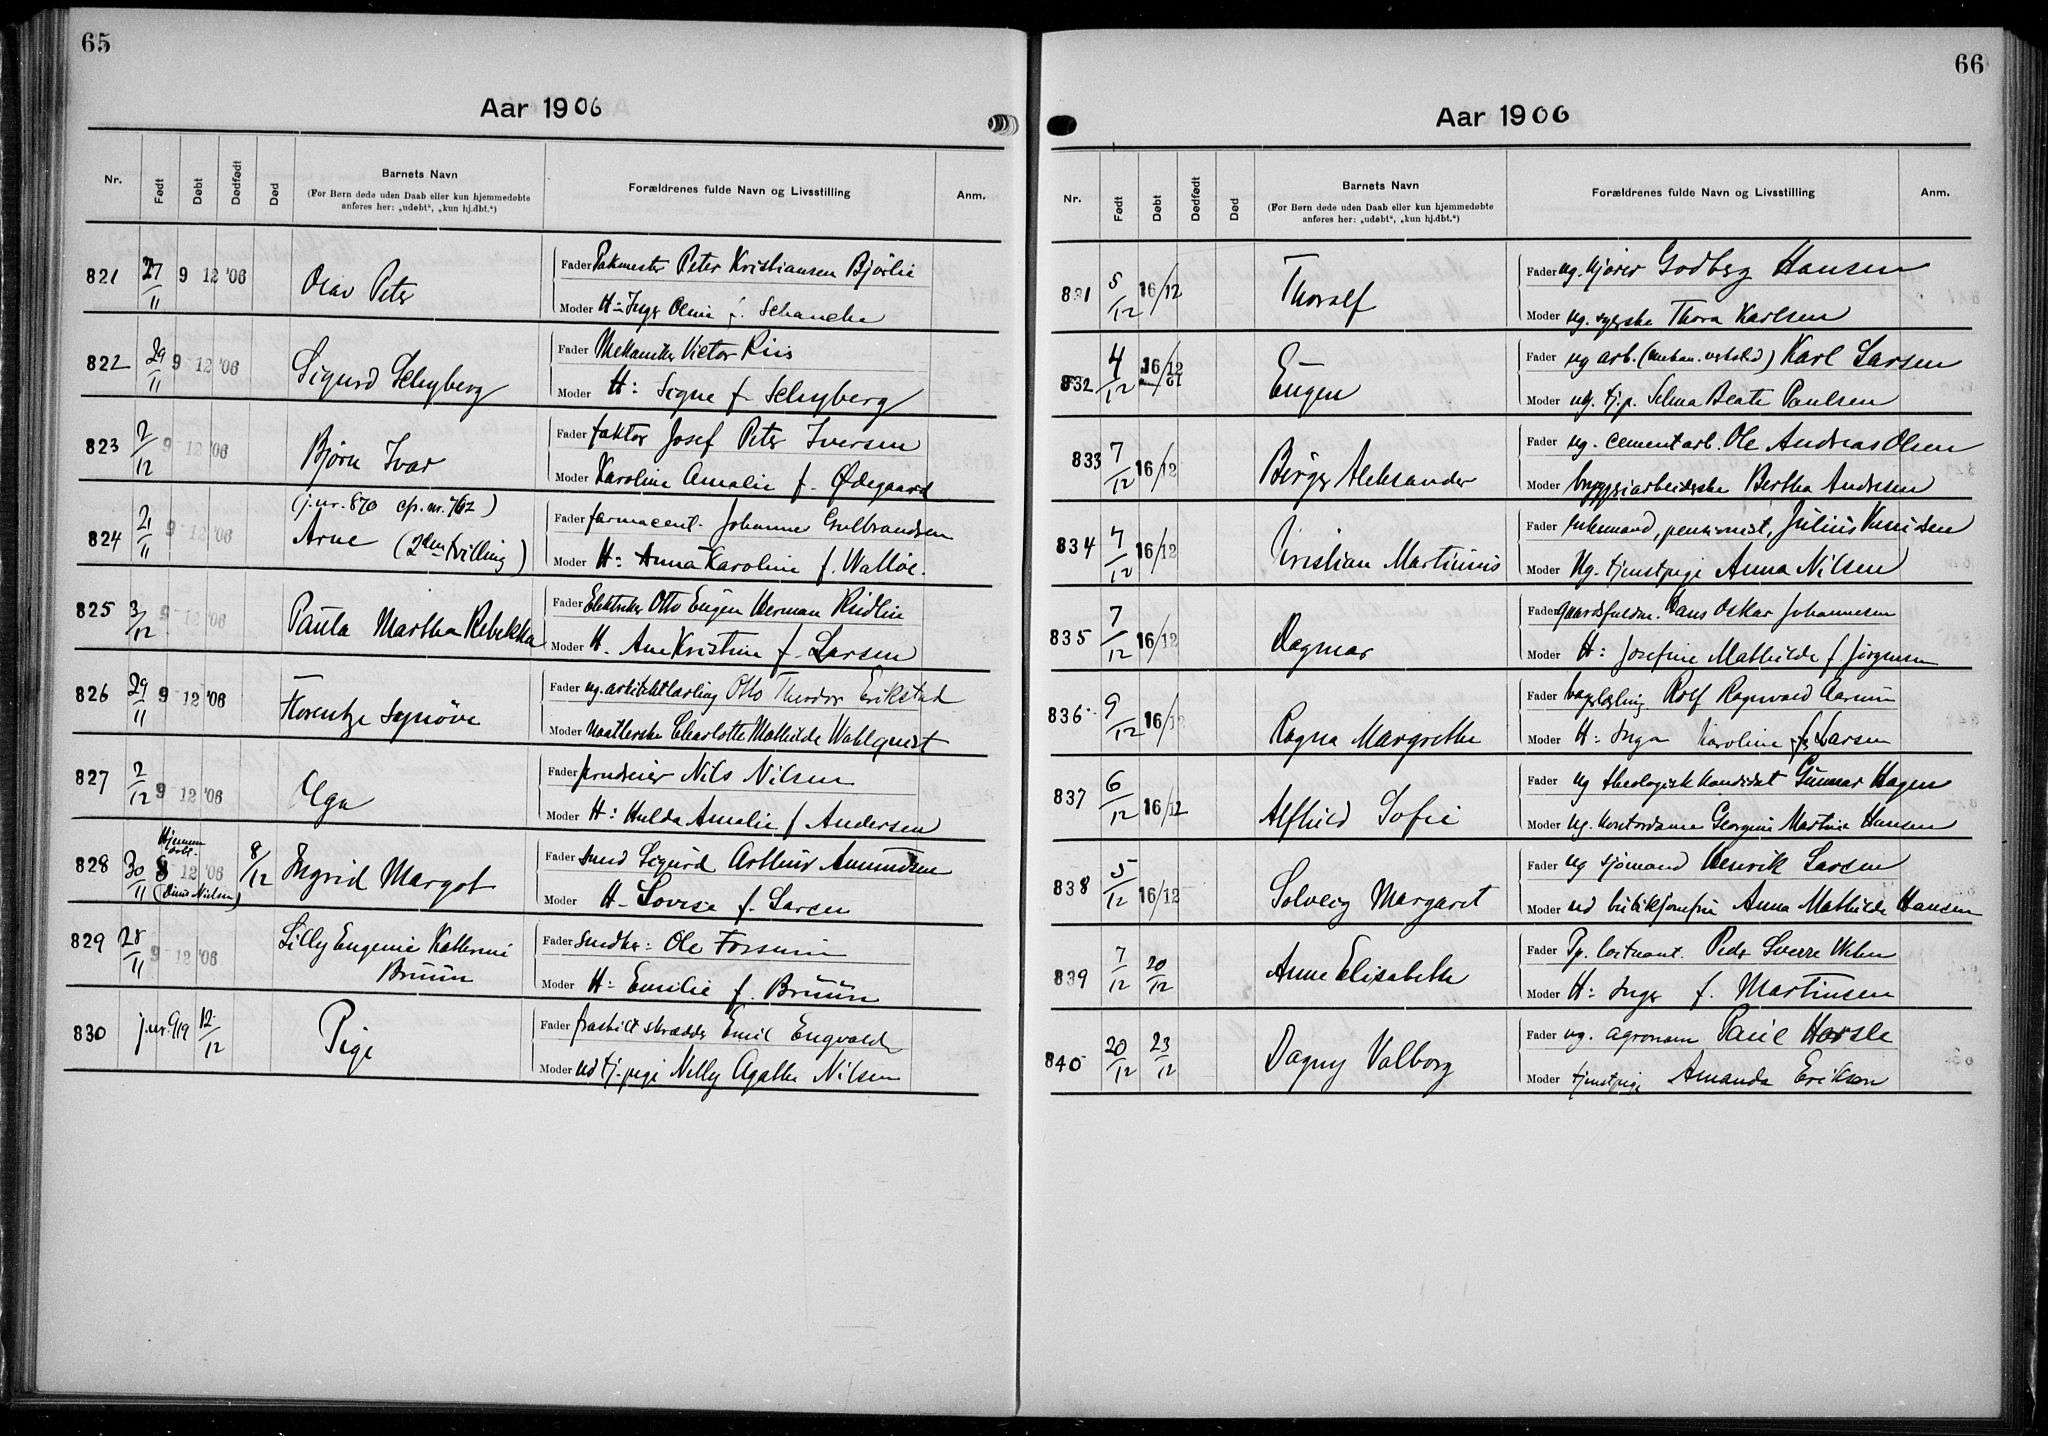 65
Aar 1906
Nr.
Født
Døbt
Dødfødt
Død
Barnets Navn
(For Børn døde uden Daab eller kun hjemmedøbte
anføres her: „udøbt“, „kun hj.dbt.“)
Forældrenes fulde Navn og Livsstilling
Anm.
821 27/11 9 12 '06 Olav Peter
Fader Pakmester Peter Kristiansen Bjørlie
Moder H: Inger Oline f. Schancke
822 29/11 9 12 '06 Sigurd Schyberg
Fader Mekaniker Victor Riis
Moder H: Signe f. Schyberg
823 2/12 9 12 '06 Bjørn Ivar
Fader faktor Josef Peter Iversen
Moder Karoline Amalie f. Ødegaard
(j.nr. 870 cfr. nr. 762)
824 21/11 9 12 '06 Arne (2den tvilling)
Fader farmaceut. Johannes Gulbrandsen
Moder H: Anna Karoline f. Walløe.
825 3/12 9 12 '06 Paula Martha Rebekka
Fader Elektriker Otto Eugen Herman Rudlin
Moder H. Ane Kristine f. Larsen
826 29/11 9 12 '06 Florentze Synøve
Fader ug. arkitektlærling Otto Theodor Erikstad
Moder Maatterske Charlotte Mathilde Wahlquist
827 2/12 9 12 '06 Olga
Fader Nils Nilsen
Moder H: Hulda Amalie f. Andersen
Hjemme
døbt.
828 30/11 8 12 '06 8/12 Ingrid Margot
Nielsen)
Fader smed Sigurd Arthur Amundsen
Moder H. Lovise f. Larsen
829 28/11 9 12 '06 Lilly Eugenie Kathrine
Bruun
Fader snedker: Ole Forsum
Moder H: Emilie f. Bruun
830 j.nr. 919 12/12 Pige
Fader fraskilt skrædder Emil Engvald
Moder ud tj.pige Nelly Agathe Nilsen
66
Aar 1906
Nr.
Født
Døbt
Dødfødt
Død
Barnets Navn
(For Børn døde uden Daab eller kun hjemmedøbte
anføres her: „udøbt“, „kun hj.dbt.“)
Forældrenes fulde Navn og Livsstilling
Anm.
831 5/12 16/12 Thoralf
Fader ug. kjører Godberg Hansen
Moder ug. syerske Thora Karlsen
832 4/12 16/12 Eugen
Fader ug arb. (mekan. verksted) Karl Larsen
Moder ug. tj.p. Selma Beate Paulsen
833 7/12 16/12 Børge Aleksander
Fader ug. cementarb. Ole Andreas Olsen
Moder bryggeriarbeiderske Bertha Andresen
834 7/12 16/12 Kristian Martinius
Fader enkemand, pensionist, Julius Knudsen
Moder Ug. tjenstpige Anna Nilsen
835 7/12 16/12 Dagmar
Fader gaardsfuldm. Hans Oskar Johannesen
Moder H: Josefine Mathilde f. Jørgensen
836 9/12 16/12 Ragna Margrethe
Fader Rolf Ragnvald
Moder H: Inga Karoline f. Larsen
837 6/12 16/12 Alfhild Sofie
Fader ug theologisk kandidat Gunnar Hagen
Moder ug. kontordame Georgine Martine Hansen
838 5/12 16/12 Solveig Margaret
Fader ug sjømand Henrik Larsen
Moder ud butikjomfru Anna Mathilde Hansen
839 7/12 20/12 Anne Elisabeth
Fader Pr. løitnant. Peder Sverre
Moder H: Inger f. Martinsen
840 20/12 23/12 Dagny Valborg
Fader ug. agronom Paul Horsle
Moder tjenstpige Amanda Erikson